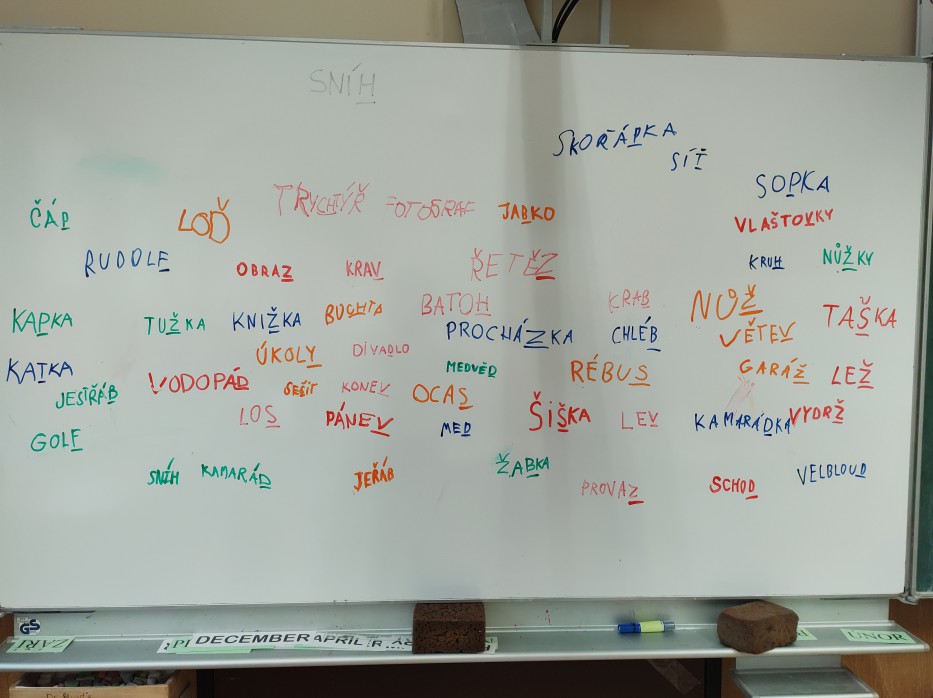 SNÍH
SKOŘÁPKA
SÍŤ
SOPKA
ČÁP
LOĎ
TRYCHTÝŘ
FOTOGRAF
JABKO
VLAŠTOVKY
RUDOLF
OBRAZ
KRAV
ŘETĚZ
KRUH
NŮŽKY
KAPKA
TUŽKA
KNIŽKA
BUCHTA
BATOH
PROCHÁZKA
KRAB
CHLÉB
NOŽ
VĚTEV
TAŠKA
KATKA
JESTŘÁB
VODOPÁD
ÚKOLY
SEŠIT
DIVADLO
KONEV
MEDVĚD
OCAS
RÉBUS
GARÁŽ
LEŽ
GOLF
LOS
PÁNEV
MED
ŠIŠKA
LEV
KAMARÁDKA
VYDRŽ
SNÍH
KAMARÁD
JEŘÁB
ŽABKA
PROVAZ
SCHOD
VELBLOUD
GS
ZÁŘÍ
DECEMBER
APRIL
ÚNOR